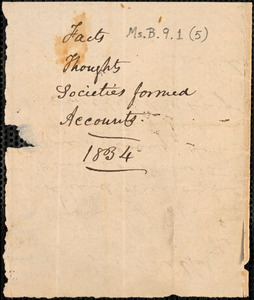 Facts Ms.B.9.1 (5)
Thoughts
Societies formed
Accounts.
1834